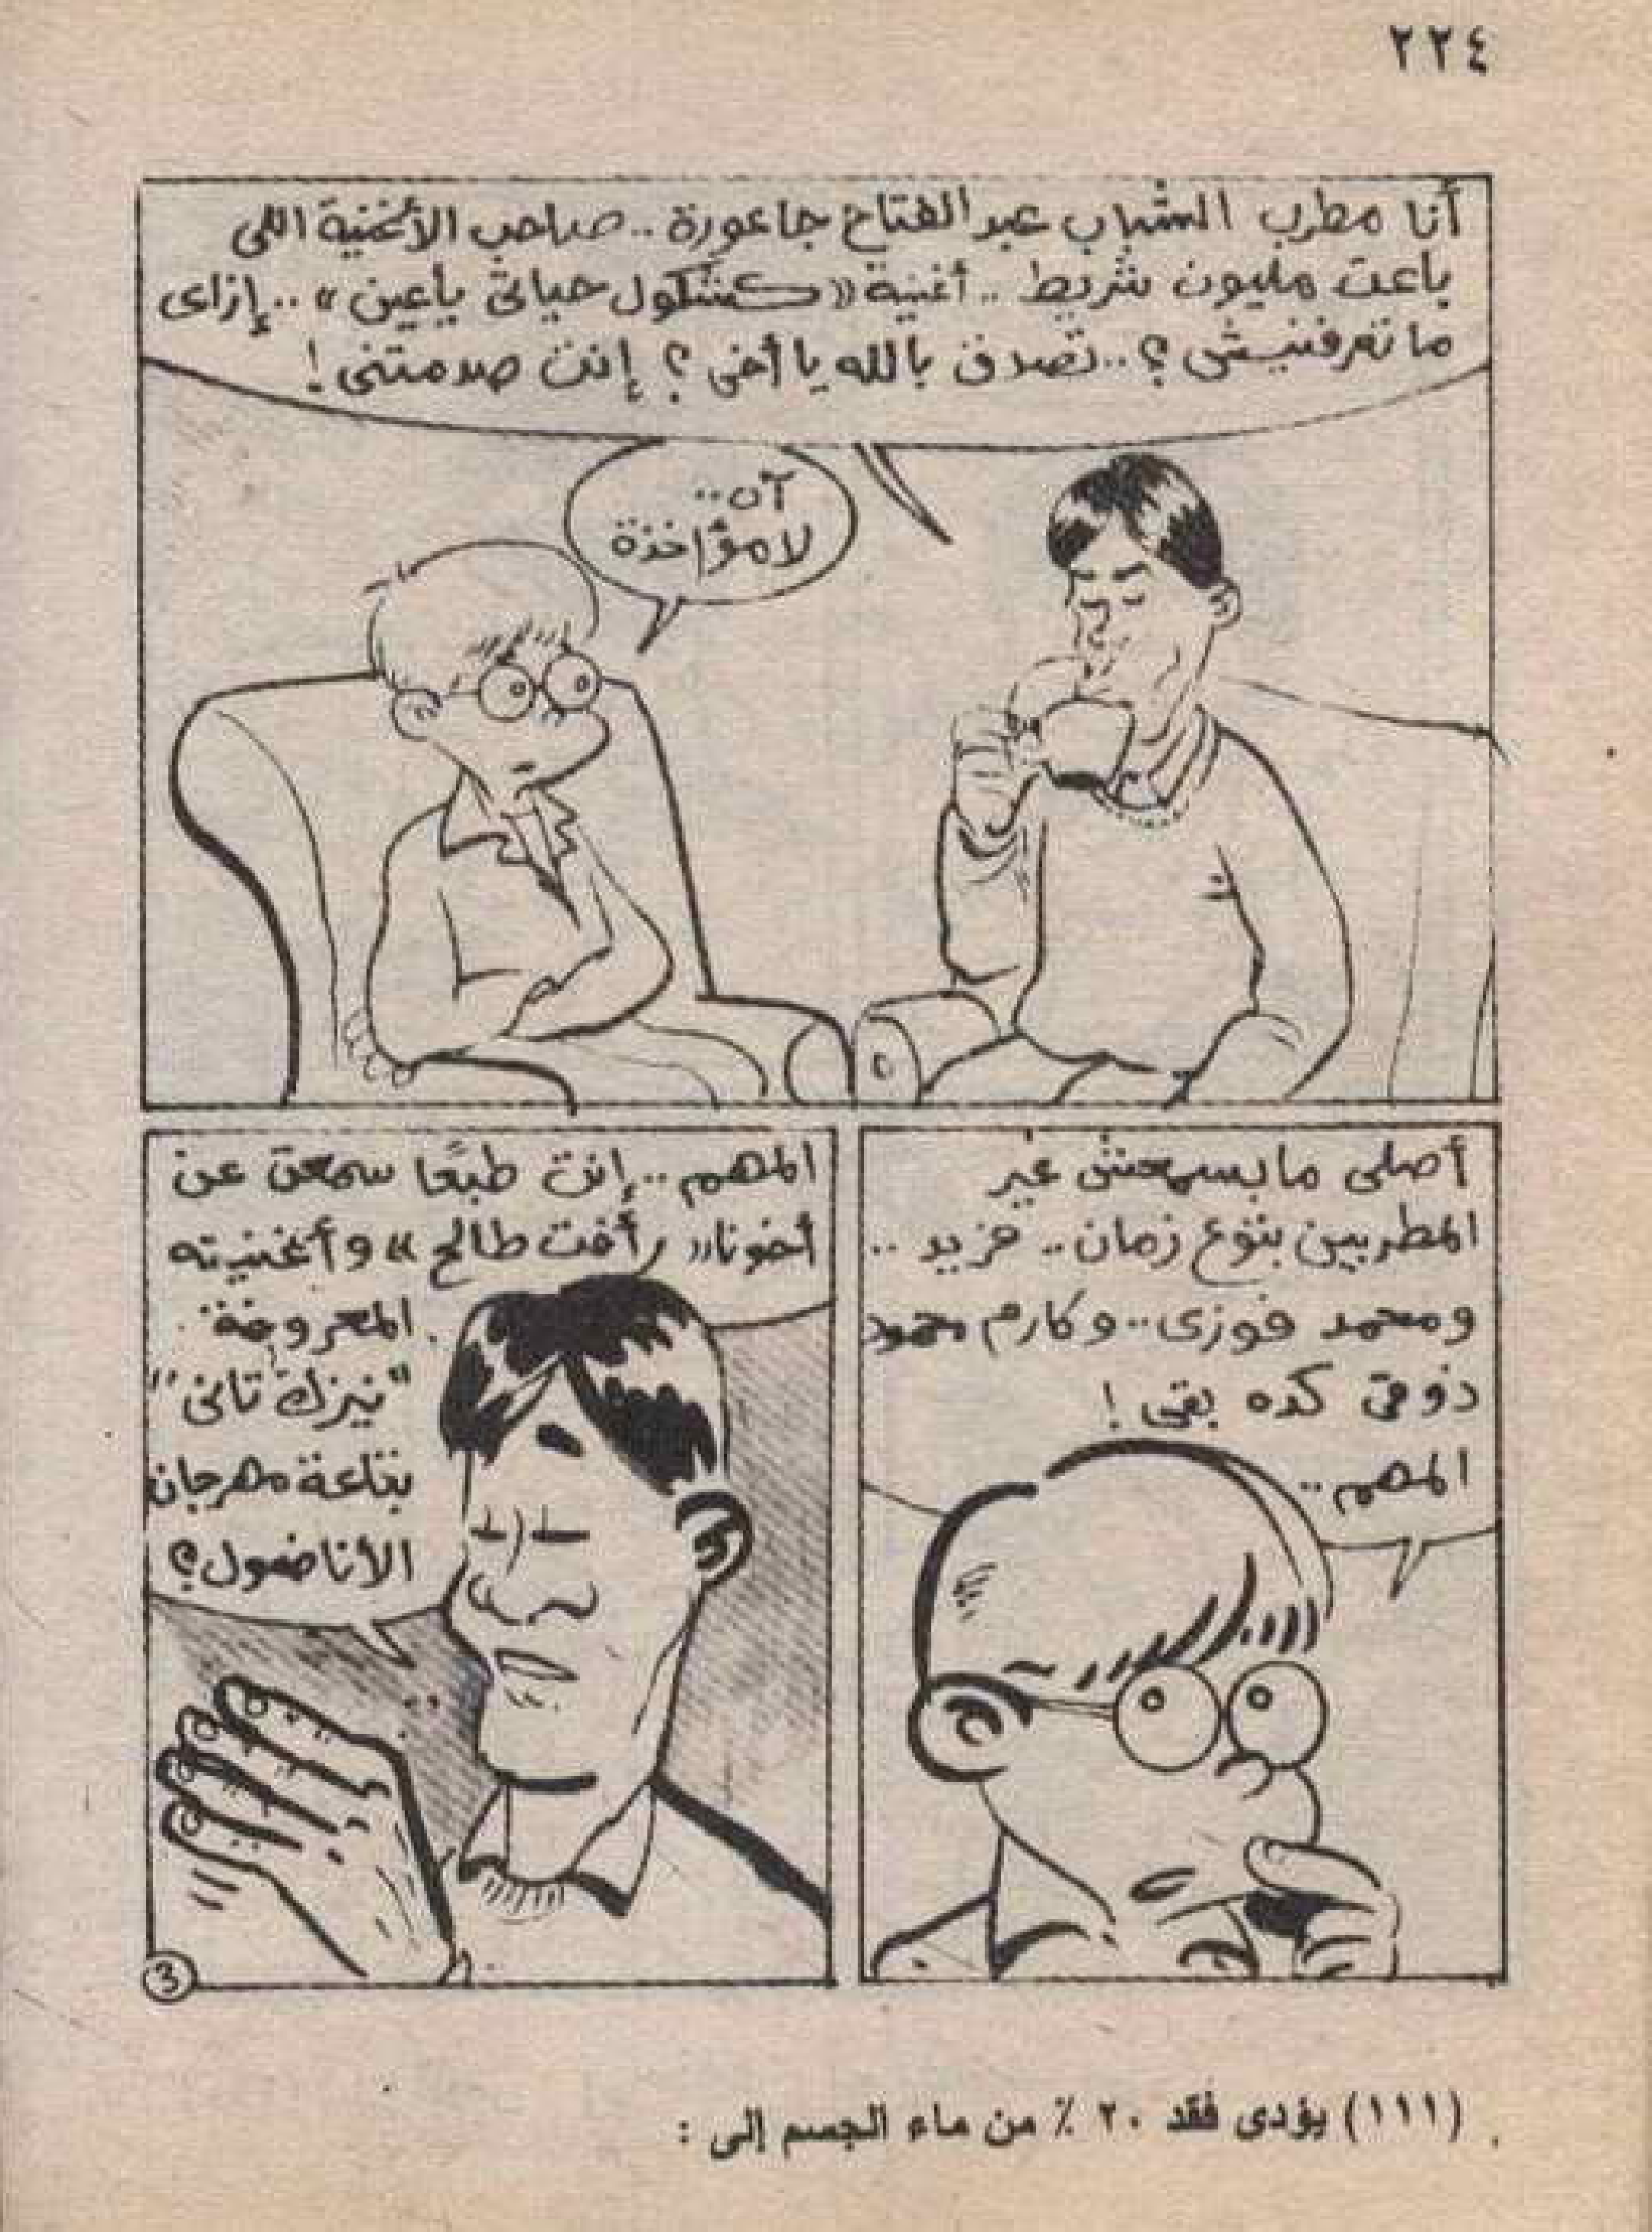 ٢٢٤
أنا مطرب الشباب عبد الفتاح جاعورة .. صاحب الأغنية اللى
باعت مليون شريط .. أغنية «كشكول حياتى ياعين» .. إزاى
ما تعرفنيش ؟ .. تصدق بالله يا أخى ؟ إنت صدمتنى !
آن ..
لا مؤاخذة
أصلى ما بسمعش غير
المطربين بتوع زمان .. فريد ..
ومحمد فوزى .. وكارم محمود
ذوقى كده بقى !
المهم ..
المهم .. إنت طبعًا سمعت عن
أخونا «رأفت طالح» وأغنيته
المعروفة
"نيزك تانى"
بتاعة مهرجان
الأناضول ؟
3
(١١١) يؤدى فقد ٢٠ ٪ من ماء الجسم إلى :